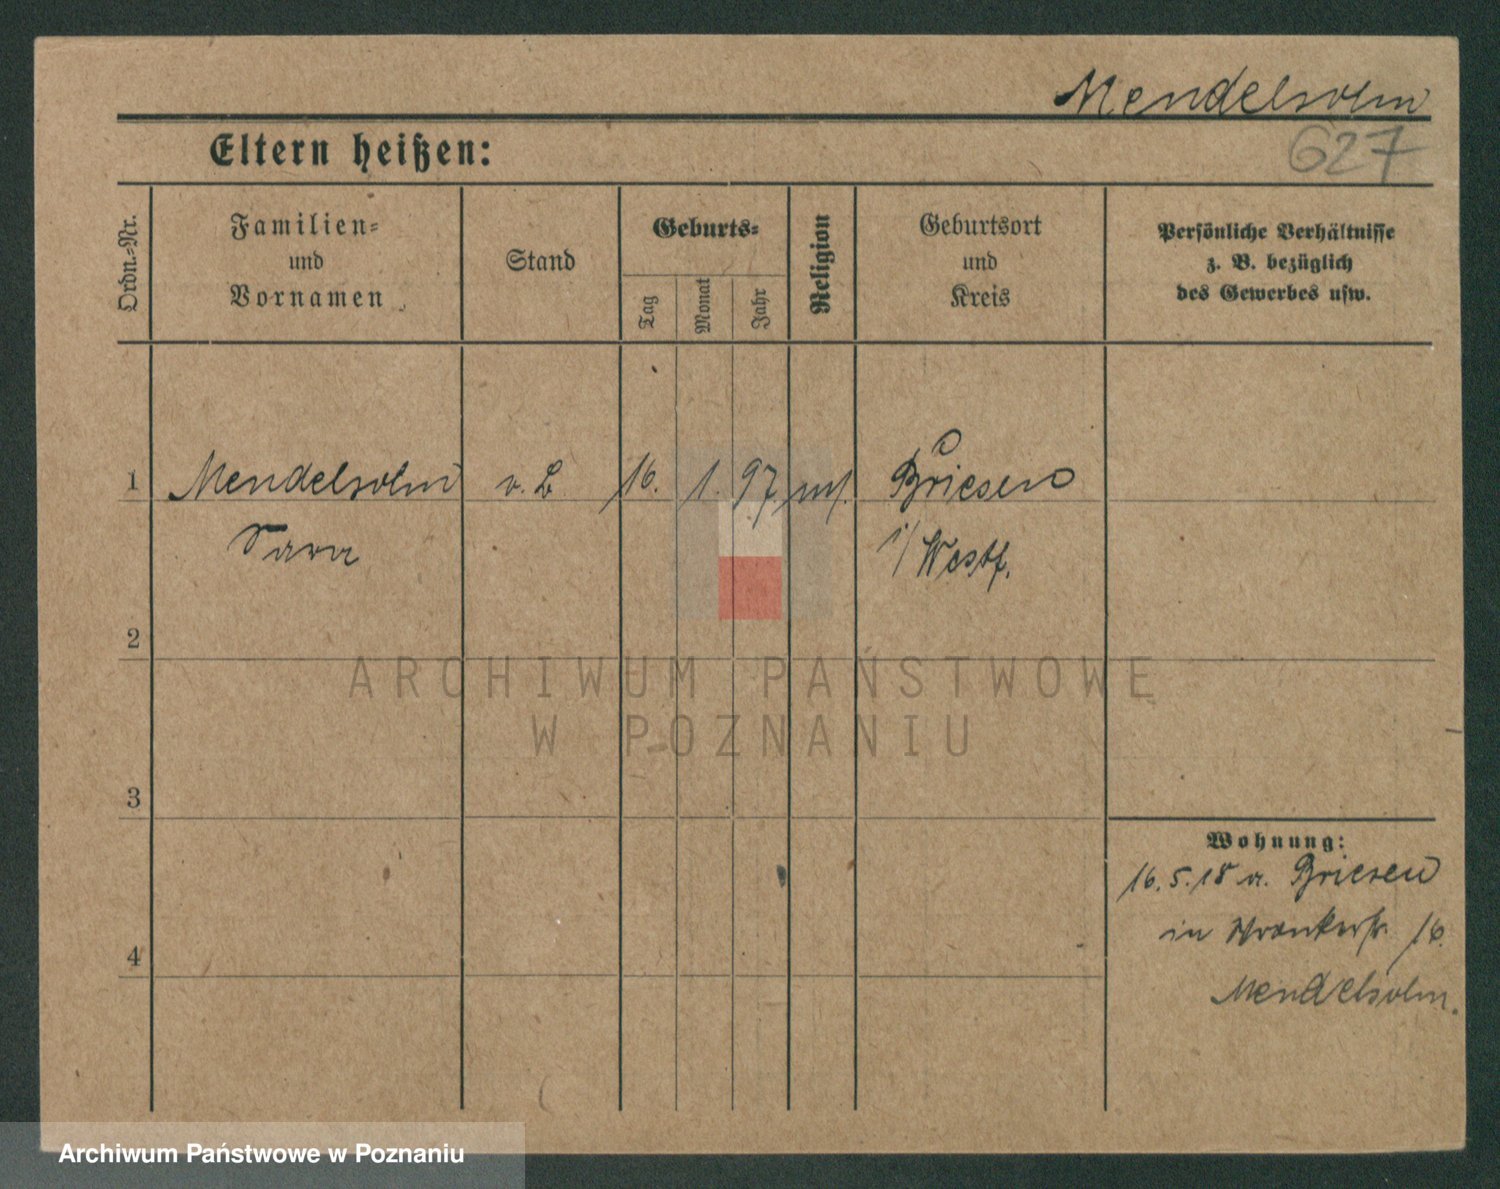 Mendelsohn
627
Eltern heißen:
Ordn.-Nr.
Familien-
und
Vornamen
Stand
Geburts-
Tag
Monat
Jahr
Religion
Geburtsort
und
Kreis
Persönliche Verhältnisse
z. B. bezüglich
des Gewerbes usw.
1 Mendelsohn 16. 1. 97. Briesen
Sara i/Westf.
2
3
4
Wohnung:
16.5.18 a. Briesen
in Wronkerstr. 16.
Mendelsohn.
ARCHIWUM PAŃSTWOWE
W POZNANIU
Archiwum Państwowe w Poznaniu